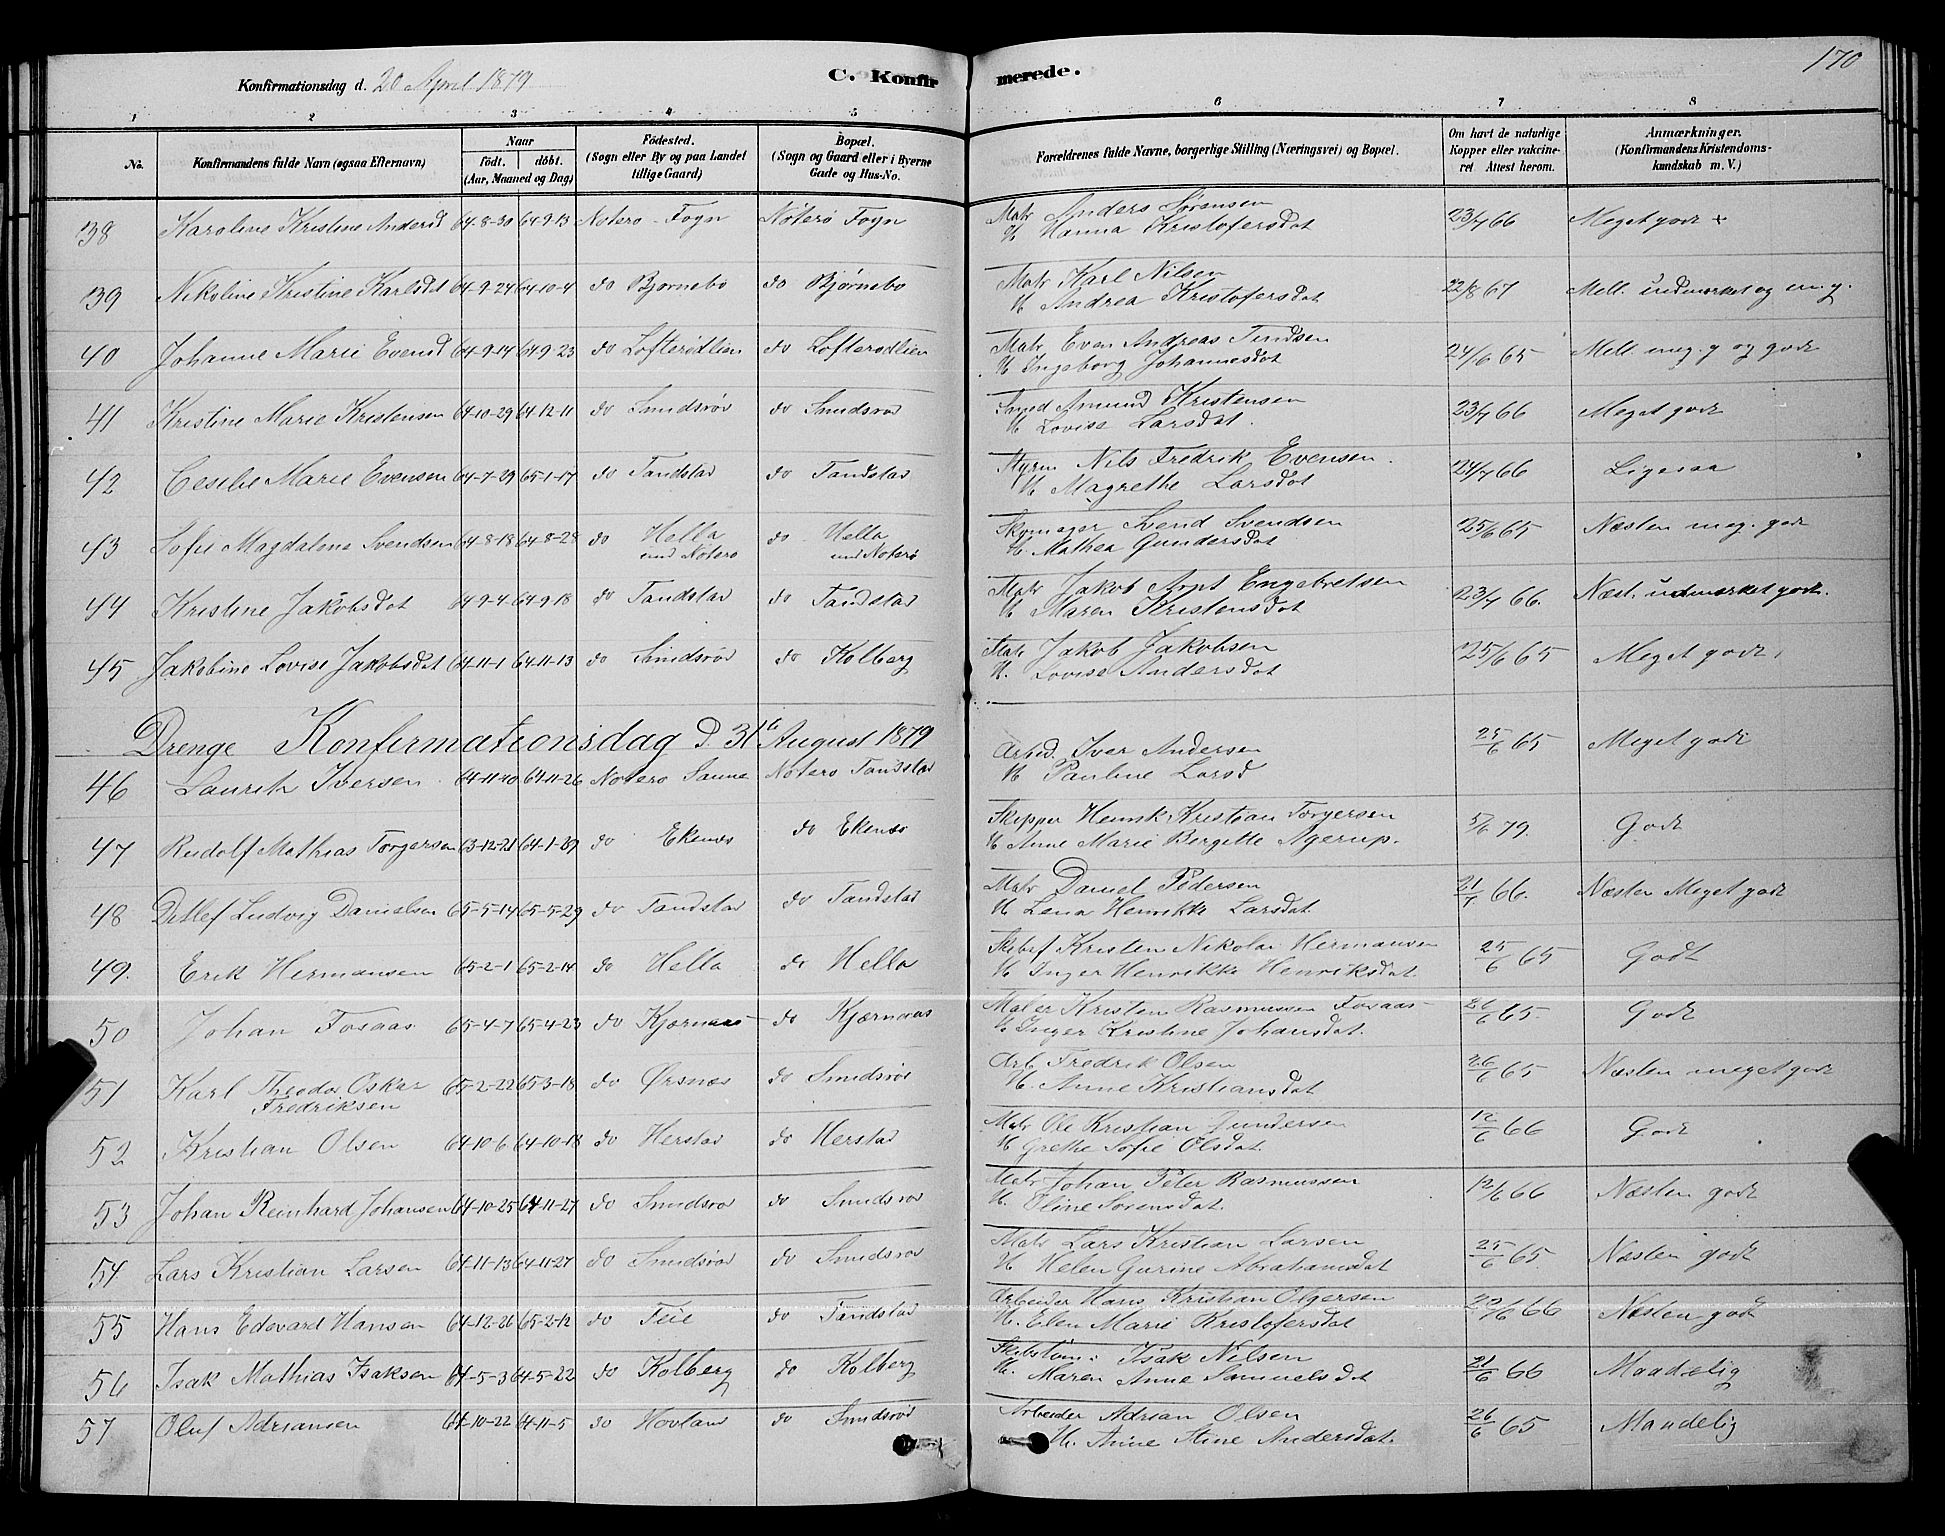 170
Konfirmationsdag d. 20 April 1879
C. Konfirmerede.
1 2 3 4 5 6 7 8
No. Konfirmandens fulde Navn (ogsaa Efternavn) Naar født. døbt. (Aar, Maaned og Dag) Fødested. (Sogn eller By og paa Landet tillige Gaard) Bopæl. (Sogn og Gaard eller i Byerne Gade og Hus-No. Forældrenes fulde Navne, borgerlige Stilling (Næringsvei) og Bopæl. Om havt de naturlige Kopper eller vakcineret Attest herom. Anmærkninger. (Konfirmandens Kristendomskundskab m. V.)
38 Karoline Kristine Andersd 64-8-30 64-9-13 Notero Fogn Nøterø Fogn Matr Anders Sørensen 23/7 66 Meget godt +
H Hanna Kristofersdat
39 Nikoline Kristine Karlsdat 64-9-24 64-10-4 do Bjornebo do Bjørnebo Matr Karl Nilsen 22/8 67 Mell. udmærket og m. g.
H Andrea Kristofersdat
40 Johanne Marie Evensd 64-9-14 64-9-23 do Lofterødlien do Lofterødlien Matr Even Andreas 24/6 65 Mell meg. g og godt
H Ingeborg Johannesdat
41 Kristine Marie Kristensen 64-10-29 64-12-11 do Smidsrød do Smidsrød Smed Amund Kristensen 23/7 66 Meget godt
H Lovise Larsdat.
42 Cesilie Marie Evensen 64-7-29 65-1-17 do Tandstad do Tandstad Styrm Nils Fredrik Evensen. 24/7 66 Ligesaa
H Magrethe Larsdat
43 Sofie Magdalene Svendsen 64-8-18 64-8-28 do Hella und Nøterø do Hella und Nøterø Skomager Svend Svendsen 25/6 65 Næsten meg. godt
H. Mathea Gundersdat
44 Kristine Jakobsdat 64-9-4 64-9-18 do Tandstad do Tandstad Matr Jakob Arnt Engebretsen 23/7 66. Næst. udmærket godt.
H Maren Kristensdat
45 Jakobine Lovise Jakobsdat 64-11-1 64-11-13 do Smidsrød do Kolberg Matr Jakob Jakobsen 25/6 65 Meget godt
H. Lovise Andersdat
Drenge Konfirmationsdag d. 31te August 1879
46 Laurits Iversen 64-11-10 64-11-26 Nøterø Sanne Nøterø Tandstad Arbeid. Iver Andersen 25/6 65 Meget godt
H Pauline Larsd
47 Rudolf Mathias Torgersen 63-12-21 64-1-29 do Ekenes do Ekenes Skipper Henrik Kristian Torgersen 5/6 79. Godt
H Anne Marie Bergitte Agerup.
48 Detlef Ludvig Danielsen 65-5-14 65-5-29 do Tandstad do Tandstad Matr Daniel Pedersen 21/7 66. Næsten Meget godt
H Lena Henrikke Larsdat.
49. Erik Hermansen 65-2-1 65-2-14 do Hella do Hella Skibsf Kristen Nikolai Hermansen 25/6 65 Godt
H Inger Henrikke Henriksdat.
50 Johan Fosaas 65-4-7 65-4-23 do Kjærnaas do Kjærnaas Maler Kristen Rasmussen Fosaas 26/6 65. Godt
H Inger Kristine Johansdat.
51 Karl Theodor Oskar Fredriksen 65-2-22 65-3-18 do Ørsnes do Smidsrød Arb. Fredrik Olsen 26/6 65 Næsten meget godt
H. Anne Kristiansdat
52 Kristian Olsen 64-10-6 64-10-18 do Herstad do Herstad Matr Ole Kristian Gundersen 12/6 66 Godt
H Grethe Sofie Olsdat.
53 Johan Reinhard Johansen 64-10-25 64-11-27 do Smidsrød do Smidsrød Matr Johan Peter Rasmussen 12/6 66 Næsten godt
H. Oline Sorensdat.
54 Lars Kristian Larsen 64-11-13 64-11-27 do Smidsrød do Smidsrød Matr Lars Kristian Larsen 25/6 65. Næsten godt
H Helen Gurine Abrahamsdat
55 Hans Edvard Hansen 64-12-26 65-2-12 do Teie do Tandstad Arbeider Hans Kristian Olgersen 22/6 66 Næsten godt
H. Elen Marie Kristofersdat
56 Isak Mathias Isaksen 64-5-3 64-5-22 do Kolberg do Kolberg Skibstøm: Isak Nilsen 21/6 66 Maadelig
H. Maren Anne Samuelsdat
57 Oluf Adriansen 64-10-22 64-11-5 do Hovland do Smidsrød Arbeider Adrian Olsen 26/6 65 Maadelig
H. Anne Stine Andersdat.